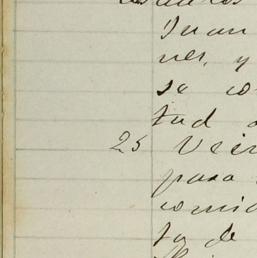 Juan
nes, y
se co
tud a
25 Vein
para
comid
ta de